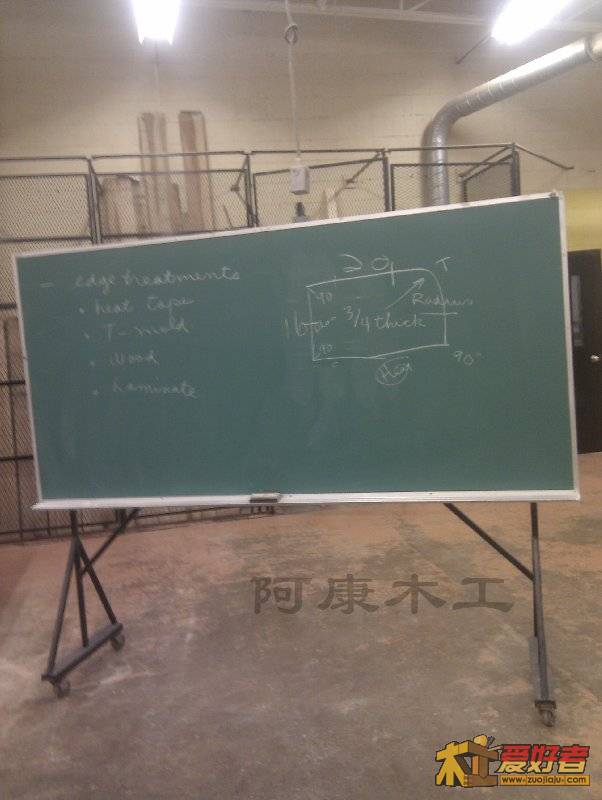 - edge treatments
• heat tape
• T-mold
• Wood
• Laminate
20
T
90
Radius
16
90
3/4 thick
90
90°
Heat
阿康木工
木工爱好者
www.zuojiaju.com